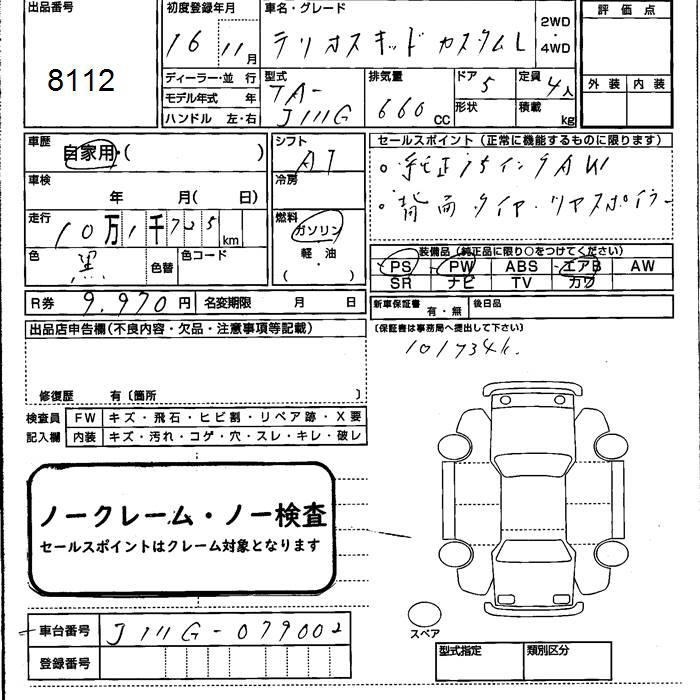 出品番号 初度登録年月 車名・グレード 評価点
8112 16 11月 テリオスキッド カスタムL 2WD・4WD
外装 内装
ディーラー・並行 型式 排気量 ドア 定員
モデル年式 年 TA-J111G 660cc 5 4人
ハンドル 左・右 形状 積載 kg
車歴 シフト セールスポイント(正常に機能するものに限ります)
自家用・( ) AT 。純正15インチAW
車検 冷房 。背面タイヤ・リヤスポイラー
年 月( 日)
走行 燃料
10万1千725km ガソリン
色 色替 色コード 軽・油
黒 ( )
装備品(純正品に限り○をつけてください)
PS PW ABS エアB AW
SR ナビ TV カワ
R券 9,970円 名変期限 月 日 新車保証書 有・無 後日品
出品店申告欄(不良内容・欠品・注意事項等記載) (保証書は事務局へ提出して下さい)
101734k.
修復歴 有〔箇所 〕
検査員 FW キズ・飛石・ヒビ割・リペア跡・X要
記入欄 内装 キズ・汚れ・コゲ・穴・スレ・キレ・破レ
ノークレーム・ノー検査
セールスポイントはクレーム対象となります
スペア
車台番号 J111G-079002
登録番号 型式指定 類別区分